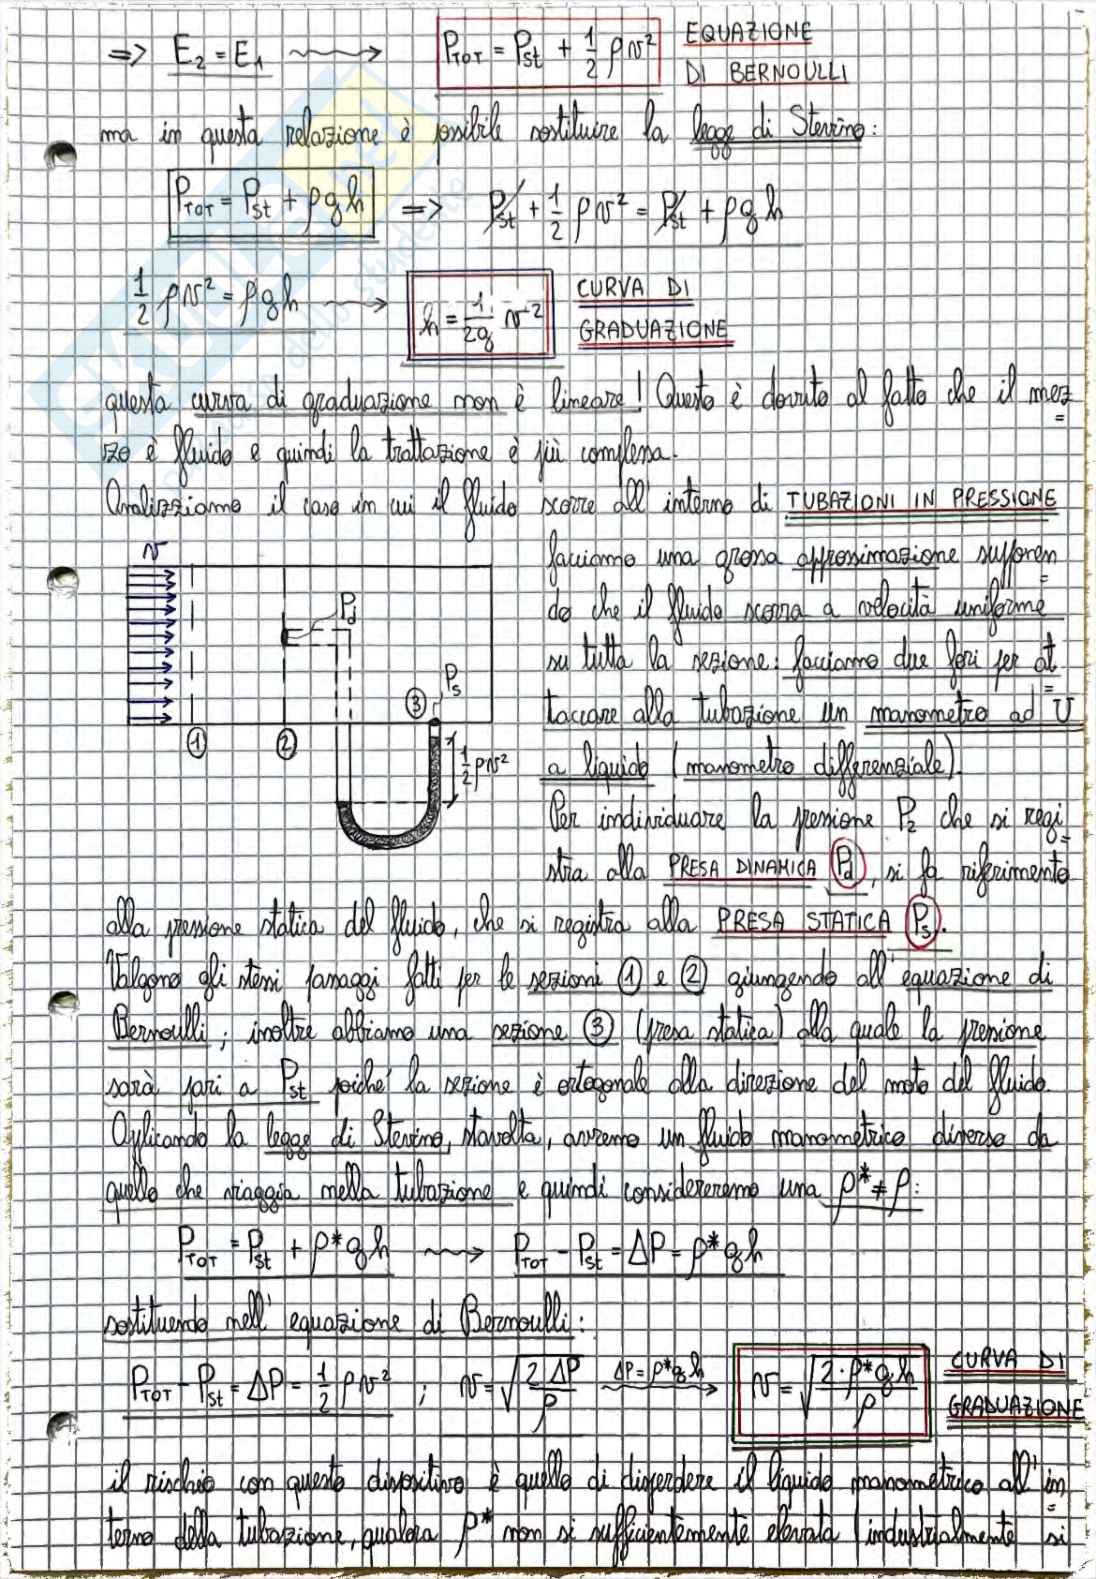 => E₂ = E₁ ⟿ P_TOT = P_St + 1/2 ρv² EQUAZIONE
DI BERNOULLI
ma in questa relazione è possibile sostituire la legge di Stevino:
P_TOT = P_St + ρgh => P_St + 1/2 ρv² = P_St + ρgh
1/2 ρv² = ρgh ⟿ h = 1/2g v² CURVA DI
GRADUAZIONE
questa curva di graduazione non è lineare! Questo è dovuto al fatto che il mez
zo è fluido e quindi la trattazione è più complessa.
Analizziamo il caso in cui il fluido scorre all'interno di TUBAZIONI IN PRESSIONE
v
P_d
P_s
③
① ②
1/2 ρv²
facciamo una grossa approssimazione supponen
do che il fluido scorra a velocità uniforme
su tutta la sezione: facciamo due fori per at
taccare alla tubazione un manometro ad U
a liquido (manometro differenziale).
Per individuare la pressione P₂ che si regi
stra alla PRESA DINAMICA P_d, si fa riferimento
alla pressione statica del fluido, che si registra alla PRESA STATICA P_s.
Valgono gli stessi passaggi fatti per le sezioni ① e ② giungendo all'equazione di
Bernoulli; inoltre abbiamo una sezione ③ (presa statica) alla quale la pressione
sarà pari a P_St poiché la sezione è ortogonale alla direzione del moto del fluido.
Applicando la legge di Stevino, stavolta, avremo un fluido manometrico diverso da
quello che viaggia nella tubazione e quindi considereremo una ρ* ≠ ρ:
P_TOT = P_St + ρ*gh ⟿ P_TOT - P_St = ΔP = ρ*gh
sostituendo nell'equazione di Bernoulli:
P_TOT - P_St = ΔP = 1/2 ρv² ; v = √(2ΔP/ρ) ΔP = ρ*gh ⟿ v = √(2·ρ*gh/ρ) CURVA DI
GRADUAZIONE
il rischio con questo dispositivo è quello di disperdere il liquido manometrico all'in
terno della tubazione, qualora ρ* non si sufficientemente elevata (industrialmente si